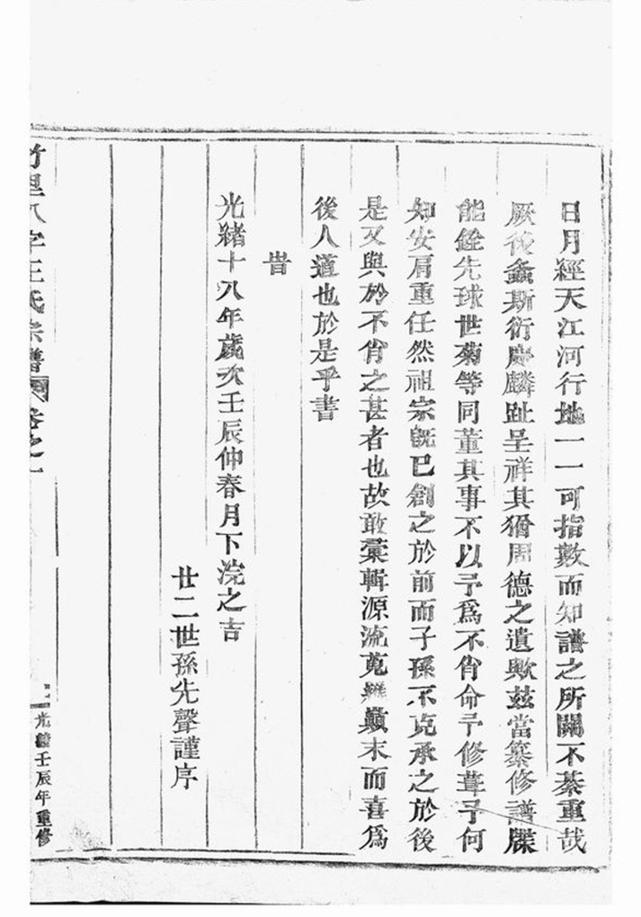 日月經天江河行地一一可指數而知譜之所關不綦重哉
厥後螽斯衍慶麟趾呈祥其猶周德之遺歟茲當纂修譜牒
能銓先球世菊等同董其事不以予爲不肖命予修葺予何
如安肩重任然祖宗旣已創之於前而子孫不克承之於後
是又與於不肖之甚者也故敢彙輯源流蒐羅顛末而喜爲
後人道也於是乎書
旹
光緒十八年歲次壬辰仲春月下浣之吉
廿二世孫先聲謹序
竹里八字王氏宗譜 卷之一
光緒壬辰年重修